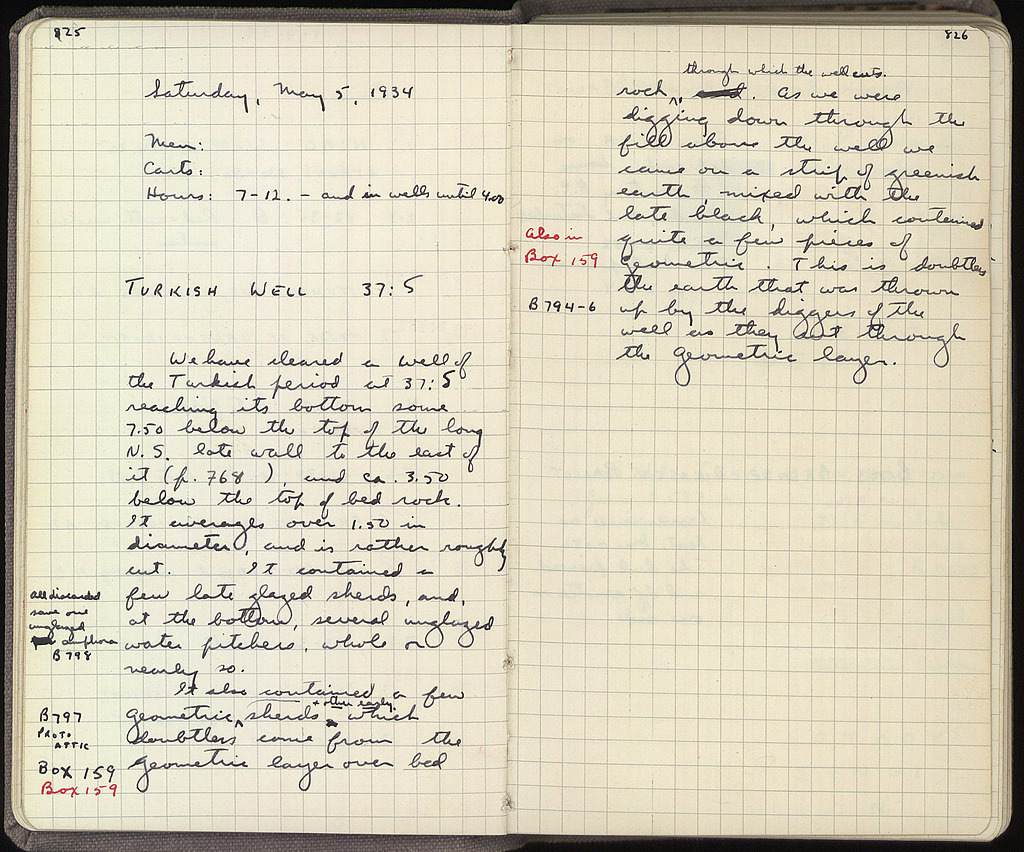 825
Saturday, May 5, 1934
Men:
Carts:
Hours: 7-12. - and in wells until 4.00
TURKISH WELL 37:5
We have cleared a well of
the Turkish period at 37:5
reaching its bottom some
7.50 below the top of the long
N.S. late wall to the east of
it (p. 768 ), and ca. 3.50
below the top of bed rock.
It averages over 1.50 in
diameter, and is rather roughly
cut. It contained a
few late glazed sherds, and,
at the bottom, several unglazed
water pitchers, whole or
nearly so.
all discarded
save one
unglazed
amphora
B 798
It also contained a few
+ other early
geometric sherds which
doubtless come from the
geometric layer over bed
B797
PROTO
ATTIC
BOX 159
Box 159
826
through which the well cuts.
rock . As we were
digging down through the
fill above the well we
came on a strip of greenish
earth, mixed with the
late black, which contained
quite a few pieces of
geometric. This is doubtless
the earth that was thrown
up by the diggers of the
well as they cut through
the geometric layer.
Also in
Box 159
B 794-6